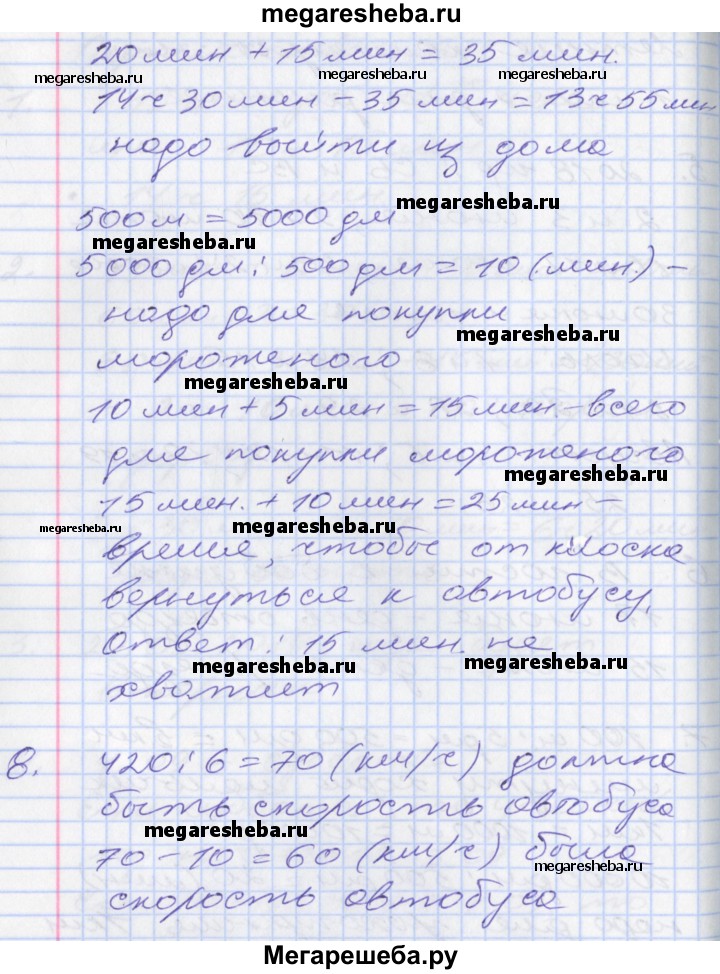 megaresheba.ru
20 мин + 15 мин = 35 мин.
megaresheba.ru megaresheba.ru megaresheba.ru
14 ч 30 мин - 35 мин = 13 ч 55 мин
надо выйти из дома
megaresheba.ru
500 м = 5000 дм
megaresheba.ru
5000 дм : 500 дм = 10 (мин.) -
надо для покупки
megaresheba.ru
мороженого
megaresheba.ru
10 мин + 5 мин = 15 мин - всего
для покупки мороженого
megaresheba.ru
15 мин. + 10 мин = 25 мин -
megaresheba.ru megaresheba.ru
время, чтобы от киоска
вернуться к автобусу.
Ответ: 15 мин. не
megaresheba.ru megaresheba.ru
хватит
8. 420 : 6 = 70 (км/ч) должна
быть скорость автобуса
megaresheba.ru
70 - 10 = 60 (км/ч) была
megaresheba.ru
скорость автобуса
Мегарешеба.ру